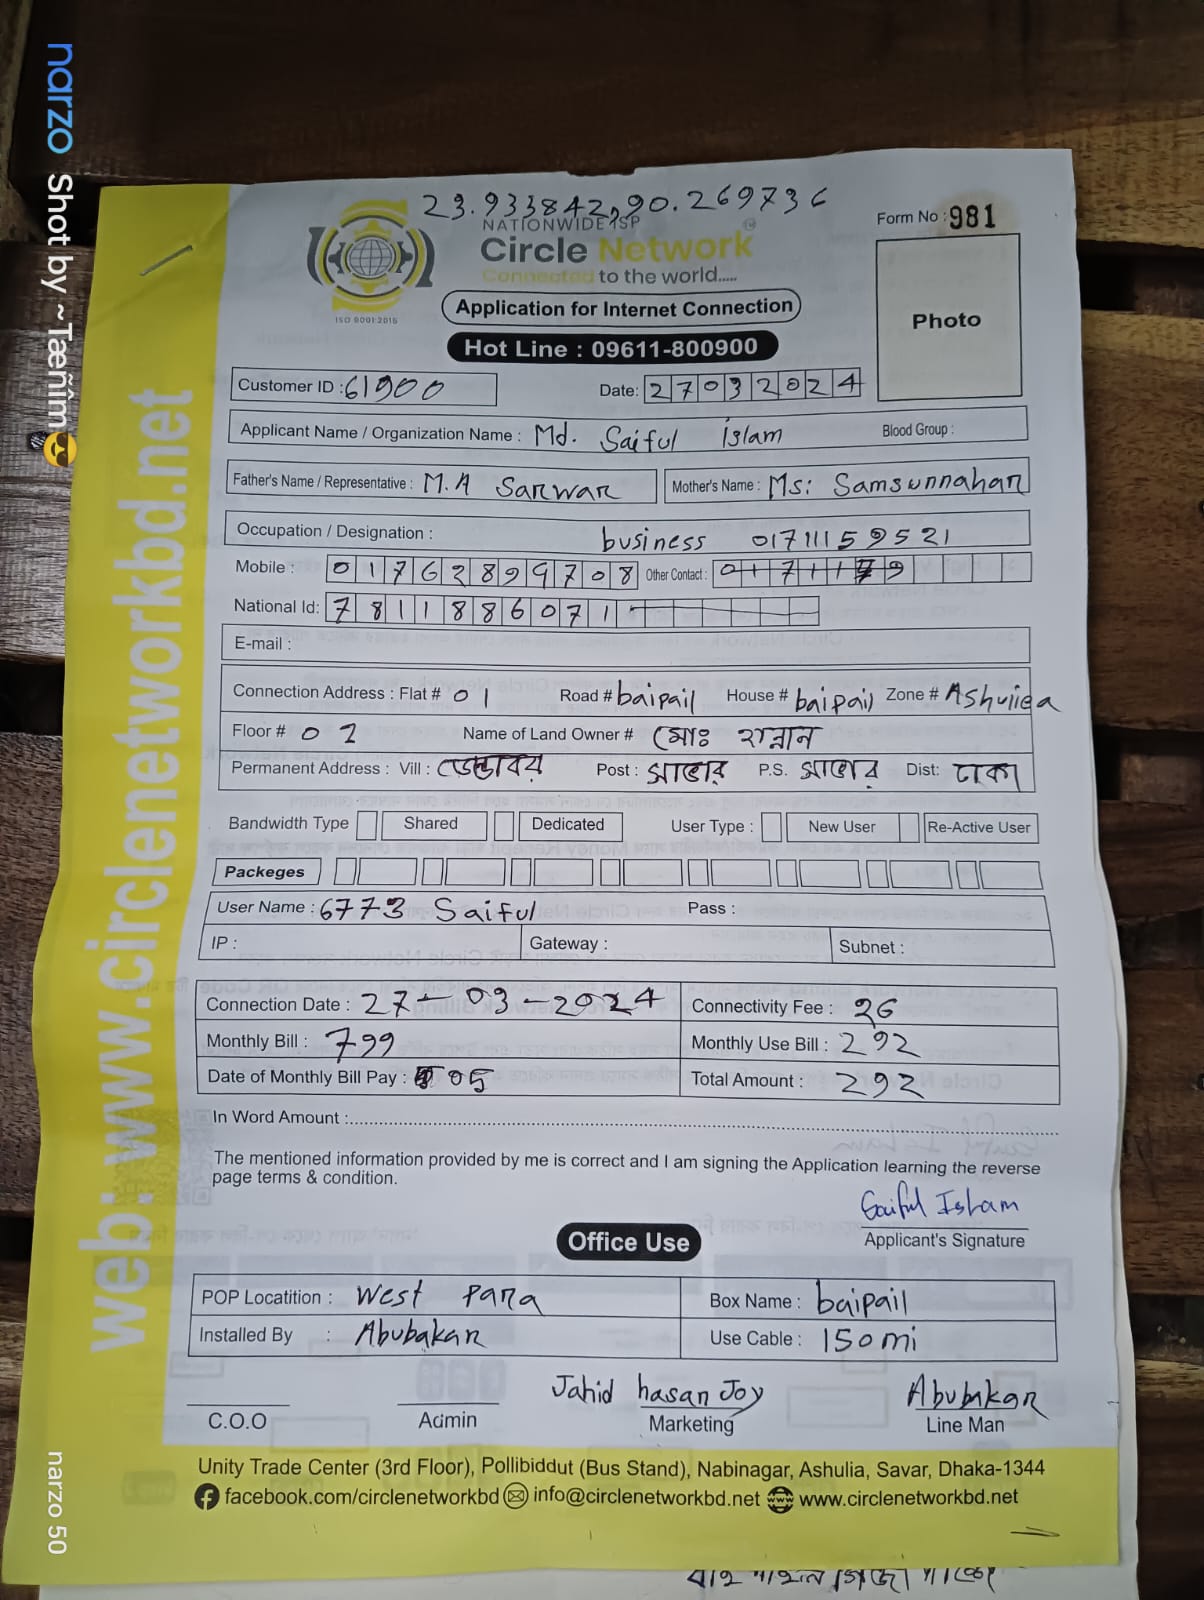 23.933842,90.269736
NATIONWIDE ISP
Circle Network®
Connected to the world.....
ISO 9001:2015
Form No : 981
Photo
Application for Internet Connection
Hot Line : 09611-800900
Customer ID : 61900 Date: 27032024
Applicant Name / Organization Name : Md. Saiful islam Blood Group :
Father's Name / Representative : M.A Sarwar Mother's Name : Ms: Samsunnahar
Occupation / Designation : business 01711159521
Mobile : 01762899708 Other Contact : 0171179
National Id: 7811886071
E-mail :
Connection Address : Flat # 01 Road # baipail House # baipail Zone # Ashuliea
Floor # 02 Name of Land Owner # মোঃ হান্নান
Permanent Address : Vill : ডেন্ডাবর Post : সাভার P.S. সাভার Dist: ঢাকা
Bandwidth Type Shared Dedicated User Type : New User Re-Active User
Packeges
User Name : 6773 Saiful Pass :
IP : Gateway : Subnet :
Connection Date : 27-03-2024 Connectivity Fee : 26
Monthly Bill : 799 Monthly Use Bill : 292
Date of Monthly Bill Pay : 05 Total Amount : 292
In Word Amount :
The mentioned information provided by me is correct and I am signing the Application learning the reverse
page terms & condition.
Saiful Islam
Applicant's Signature
Office Use
POP Locatition : west para Box Name : baipail
Installed By : Abubakar Use Cable : 150mi
Jahid hasan Joy Abubakar
C.O.O Admin Marketing Line Man
Unity Trade Center (3rd Floor), Pollibiddut (Bus Stand), Nabinagar, Ashulia, Savar, Dhaka-1344
facebook.com/circlenetworkbd info@circlenetworkbd.net www.circlenetworkbd.net
web: www.circlenetworkbd.net
narzo Shot by ~Tæñîm😎
narzo 50